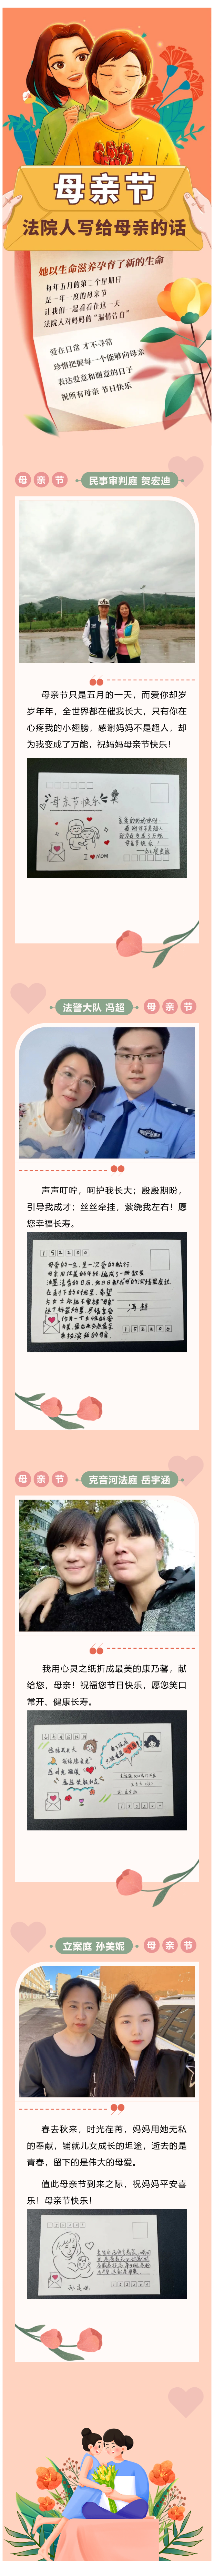 母亲节
法院人写给母亲的话
她以生命滋养孕育了新的生命
每年五月的第二个星期日
是一年一度的母亲节
让我们一起看看在这一天
法院人对妈妈的“温情告白”
爱在日常 才不寻常
珍惜把握每一个能够向母亲
表达爱意和题意的日子
祝所有母亲 节日快乐
母亲节
民事审判庭 贺宏迪
母亲节只是五月的一天，而爱你却岁
岁年年，全世界都在催我长大，只有你在
心疼我的小翅膀，感谢妈妈不是超人，却
为我变成了万能，祝妈妈母亲节快乐！
母亲节快乐
I ❤ MOM
法警大队 冯超
母亲节
声声叮咛，呵护我长大；殷殷期盼，
引导我成才；丝丝牵挂，萦绕我左右！愿
您幸福长寿。
冯超
母亲节
克音河法庭 岳宇涵
我用心灵之纸折成最美的康乃馨，献
给您，母亲！祝福您节日快乐，愿您笑口
常开、健康长寿。
立案庭 孙美妮
母亲节
春去秋来，时光荏苒，妈妈用她无私
的奉献，铺就儿女成长的坦途，逝去的是
青春，留下的是伟大的母爱。
值此母亲节到来之际，祝妈妈平安喜
乐！母亲节快乐！
孙美妮